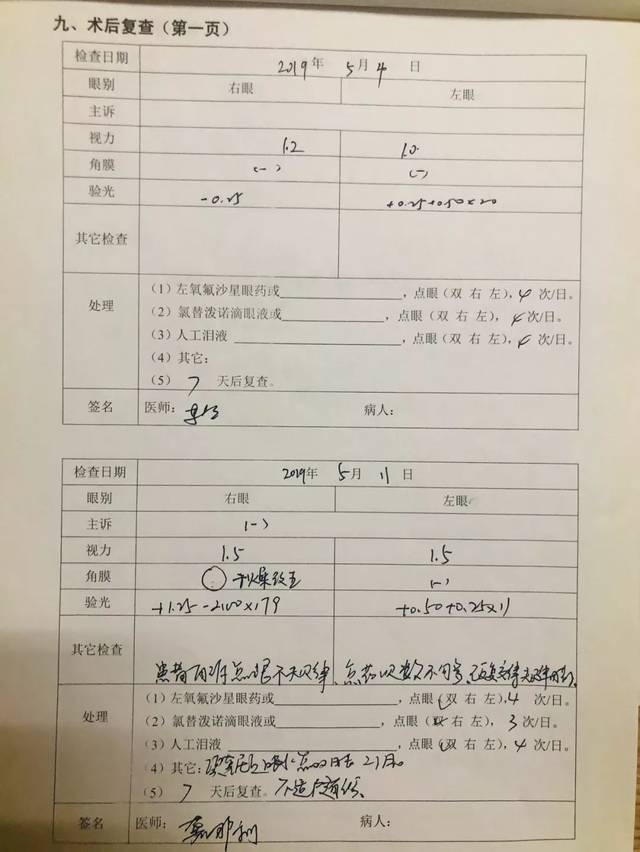 九、术后复查（第一页）
检查日期 2019年 5月 4日
眼别 右眼 左眼
主诉
视力 1.2 1.0
角膜 (-) (-)
验光 -0.25 +0.25+0.50×20
其它检查
处理
（1）左氧氟沙星眼药或____，点眼（双 右 左），4 次/日。
（2）氯替泼诺滴眼液或____，点眼（双 右 左），4次/日。
（3）人工泪液____，点眼（双 右 左），4 次/日。
（4）其它：
（5）7 天后复查。
签名 医师： 病人：
检查日期 2019年 5月 11日
眼别 右眼 左眼
主诉 (-)
视力 1.5 1.5
角膜 干燥 (-)
验光 +1.25-2.00×179 +0.50+0.25×11
其它检查 患者 点眼不规律、点药次数不
处理
（1）左氧氟沙星眼药或____，点眼（双 右 左），4 次/日。
（2）氯替泼诺滴眼液或____，点眼（双 右 左），3次/日。
（3）人工泪液____，点眼（双 右 左），4 次/日。
（4）其它：
（5）7 天后复查。不适
签名 医师： 病人：